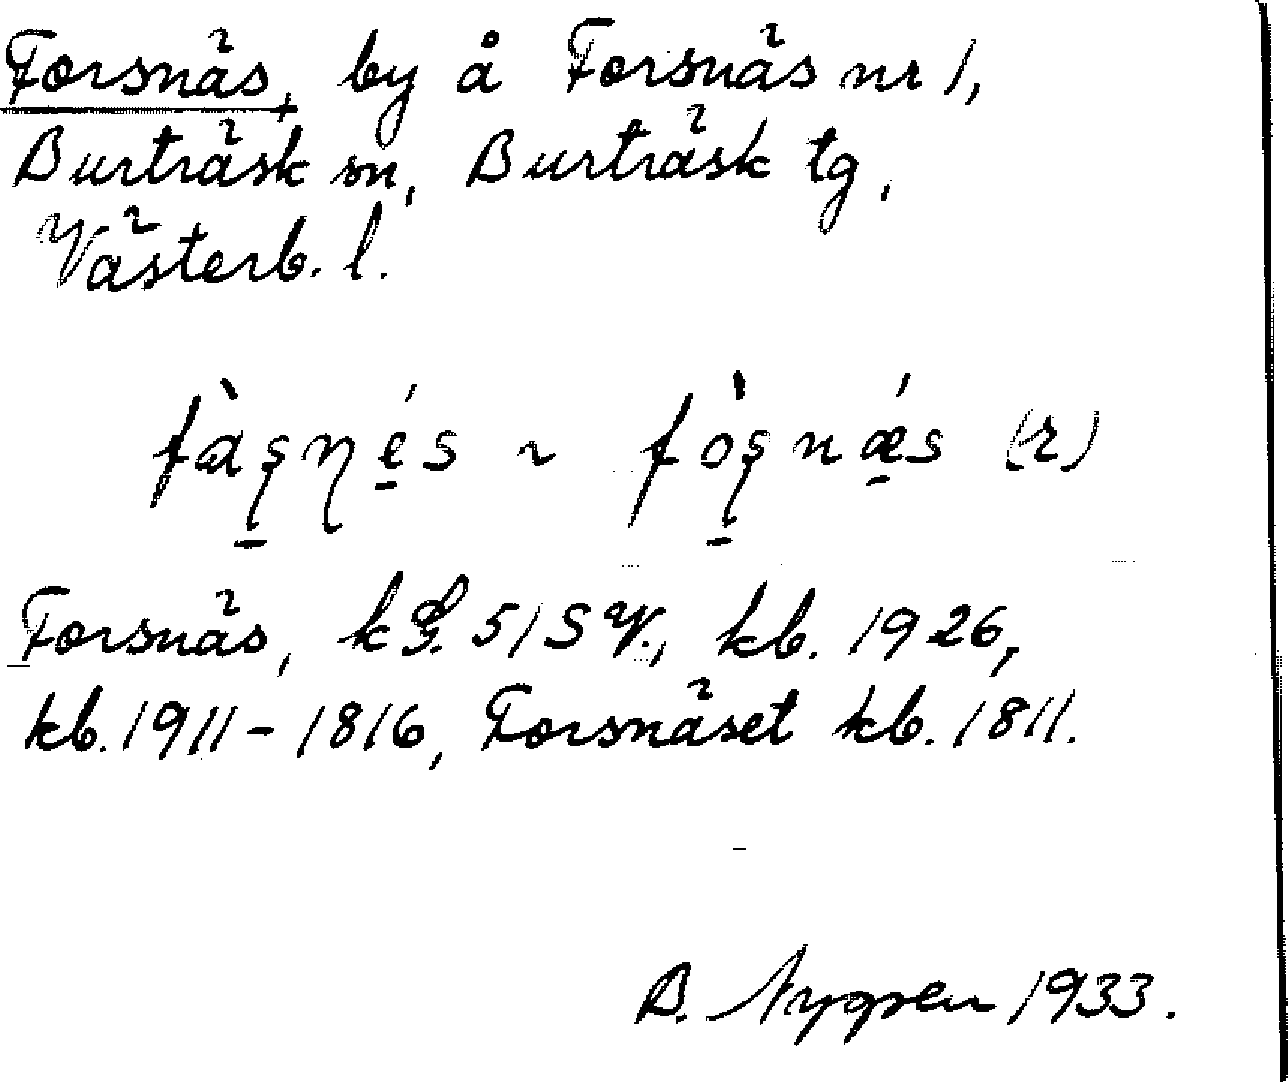 Forsnäs, by å Forsnäs nr 1,
Burträsk sn, Burträsk tg,
Västerb. l.
fàʂɳés ~ fòʂnǽs (r)
Forsnäs, kG. 51SV., kb. 1926,
kb. 1911-1816, Forsnäset kb. 1811.
B. Nygren 1933.